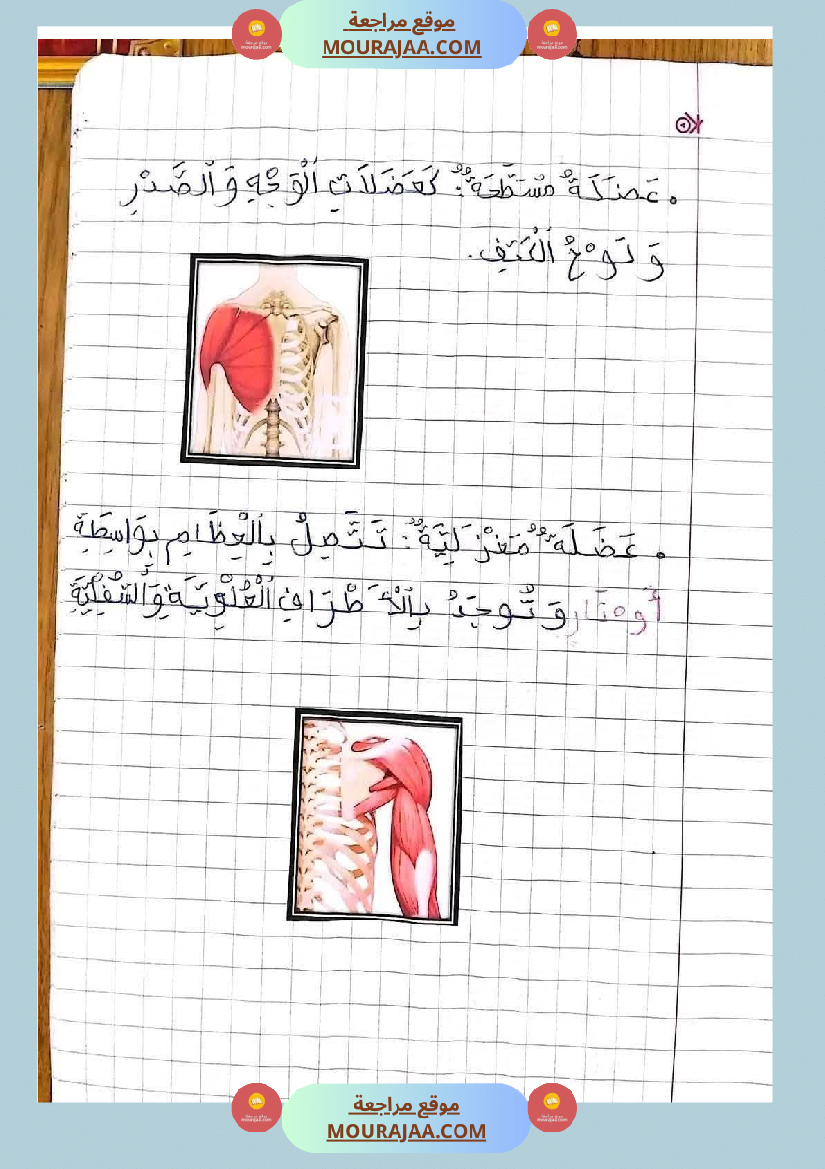 موقع مراجعة
MOURAJAA.COM
• عَضَلَةٌ مُسَطَّحَةٌ: كَعَضَلَاتِ اَلْوَجْهِ وَ اَلصَّدْرِ
وَ لَوْحُ اَلْكَتِفِ.
• عَضَلَةٌ مَغْزَلِيَّةٌ: تَتَّصِلُ بِاَلْعِظَامِ بِوَاسِطَةِ
أَوْتَارٍ وَ تُوجَدُ بِاَلْأَطْرَافِ اَلْعُلْوِيَّةِ وَ اَلسُّفْلِيَّةِ
موقع مراجعة
MOURAJAA.COM